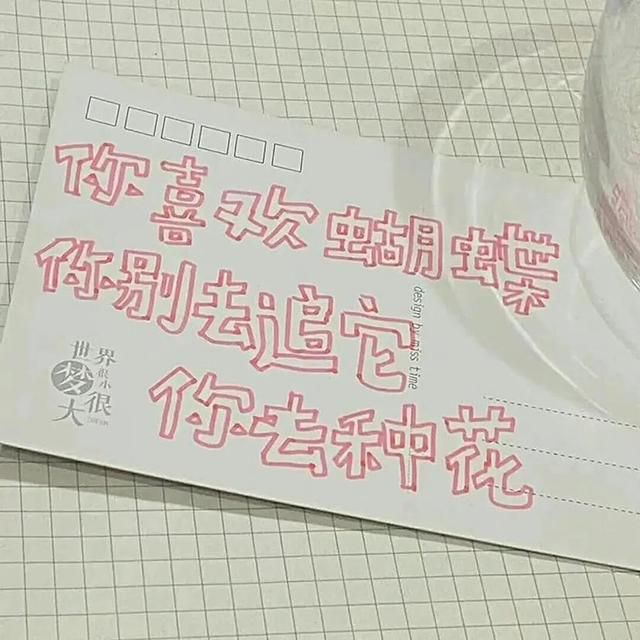 你喜欢蝴蝶
你别去追它
design by miss time
世界
很小
梦
很
大
你去种花